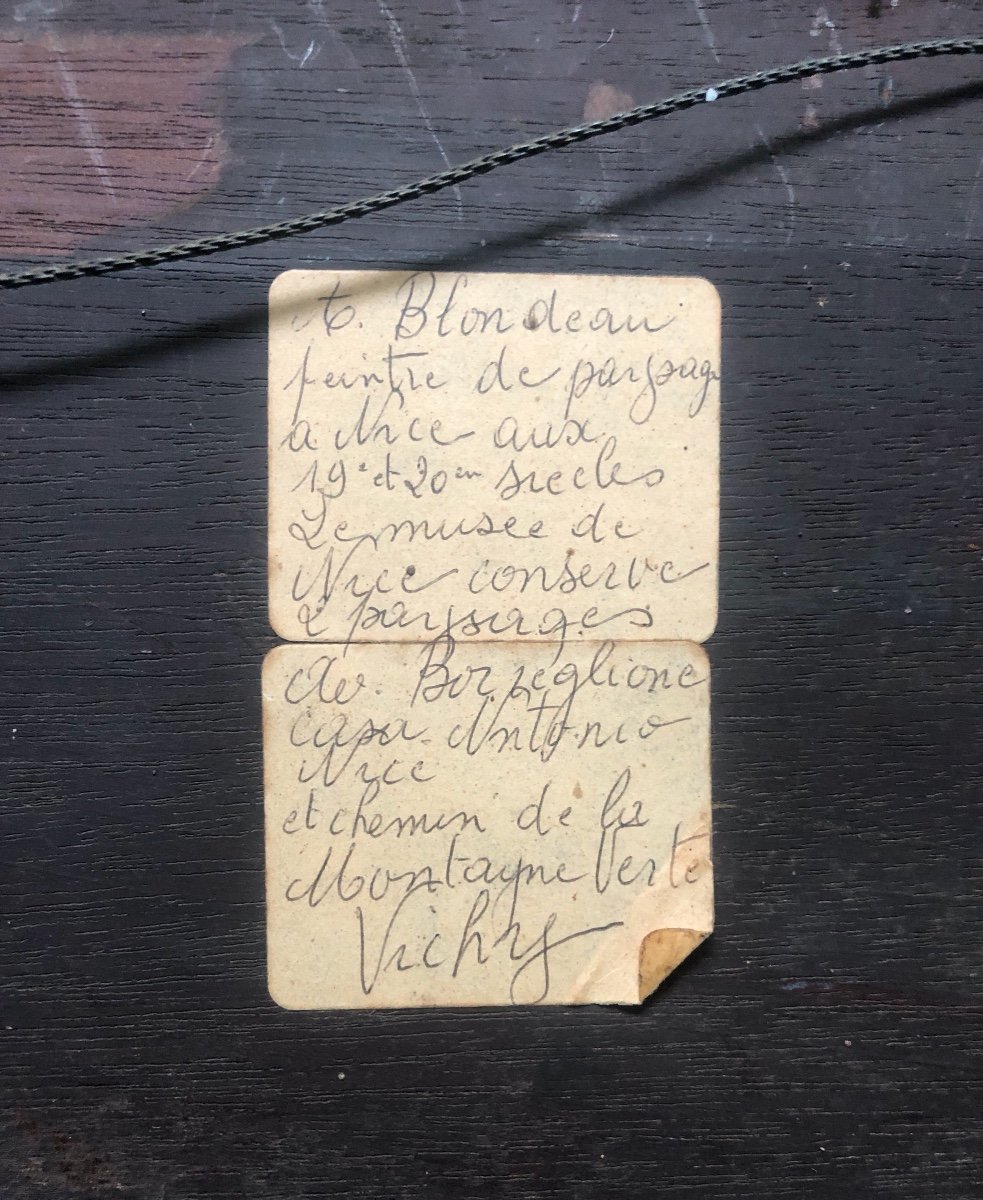 A. Blondeau
peintre de paysage
a Nice aux
19e et 20em siecles
Le musee de
Nice conserve
2 paysages
Av. Borreglione
casa Antonio
Nice
et chemin de la
Montagne Verte
Vichy